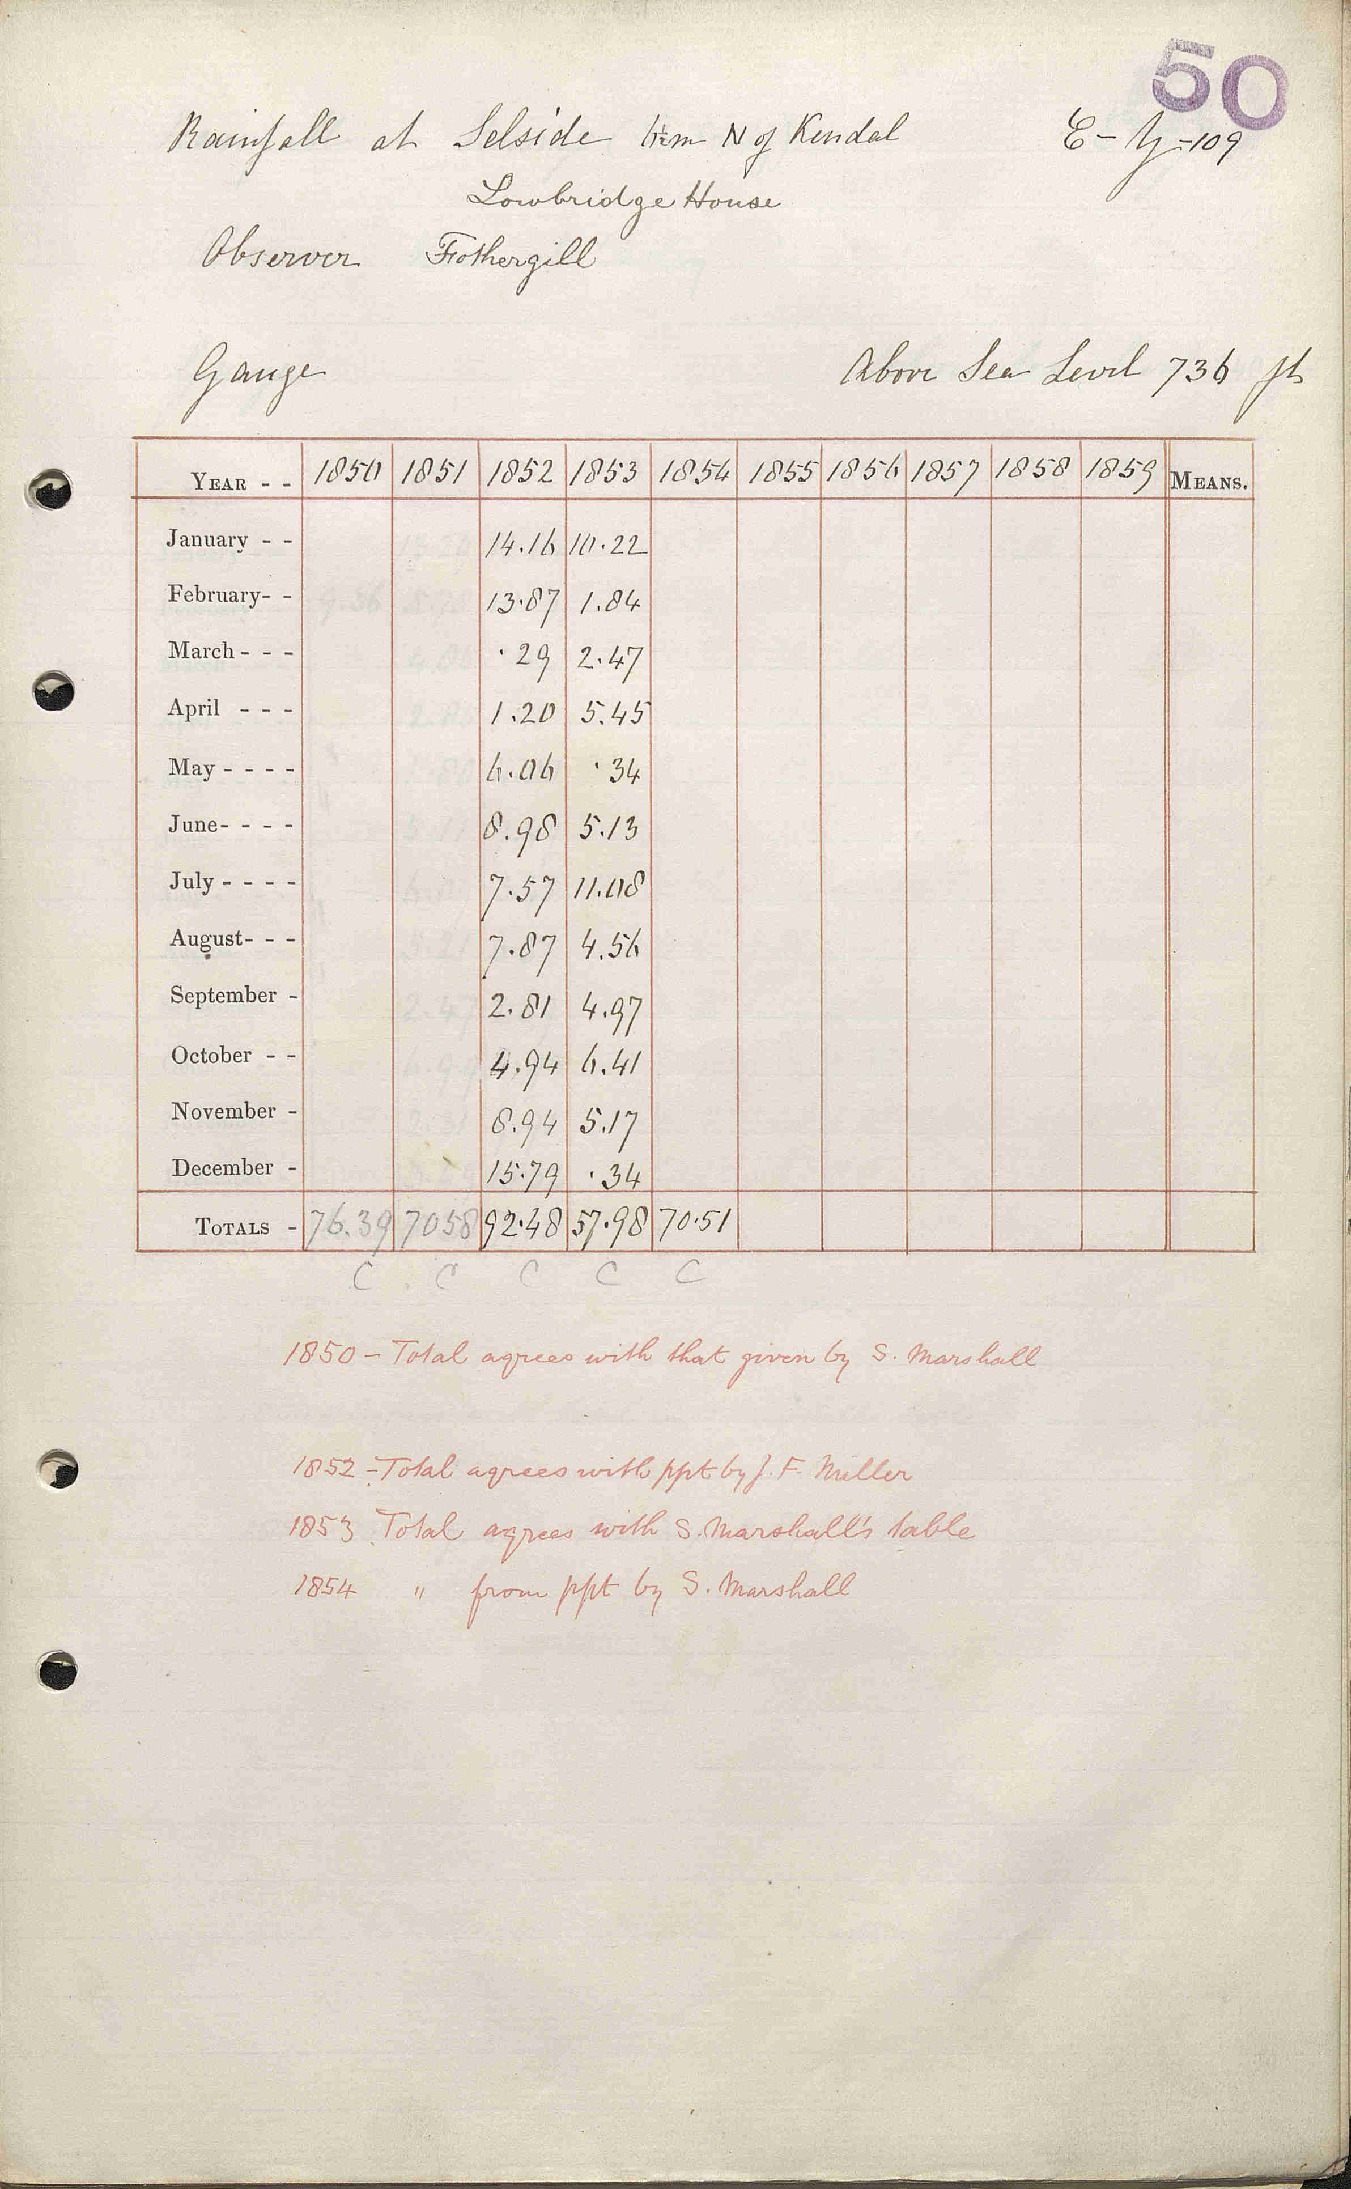 50
Rainfall at Selside 6½m N of Kendal E - Y - 109
Lowbridge House
Observer Fothergill
Gauge Above Sea Level 736 ft
YEAR - - 1850 1851 1852 1853 1854 1855 1856 1857 1858 1859 MEANS.
January - - 14.16 10.22
February- - 13.87 1.84
March - - - .29 2.47
April - - - 1.20 5.45
May - - - - 6.06 .34
June- - - - 8.98 5.13
July - - - - 7.57 11.08
August- - - 7.87 4.56
September - 2.81 4.97
October - - 4.94 6.41
November - 8.94 5.17
December - 15.79 .34
TOTALS - 76.39 7058 92.48 57.98 70.51
C C C C C
1850 - Total agrees with that given by S. Marshall
1852 - Total agrees with ppt by J. F. Miller
1853 Total agrees with S. Marshall's table
1854 " from ppt by S. Marshall